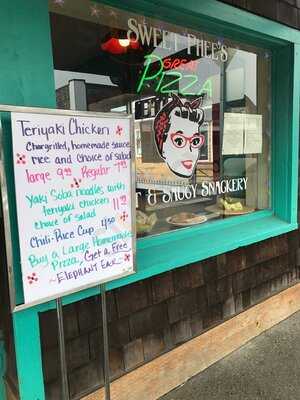 Sweet Thee's
GREAT
PIZZA
& SAUCY SNACKERY
Teriyaki Chicken
Chargrilled, homemade sauce
rice and choice of salad
large 9.99 Regular 7.99
Yaki Soba noodles with
teriyaki chicken
choice of salad
Chili-Rice Cup 4.50
Buy a Large Homemade
Pizza, Get a Free
~ELEPHANT EAR~